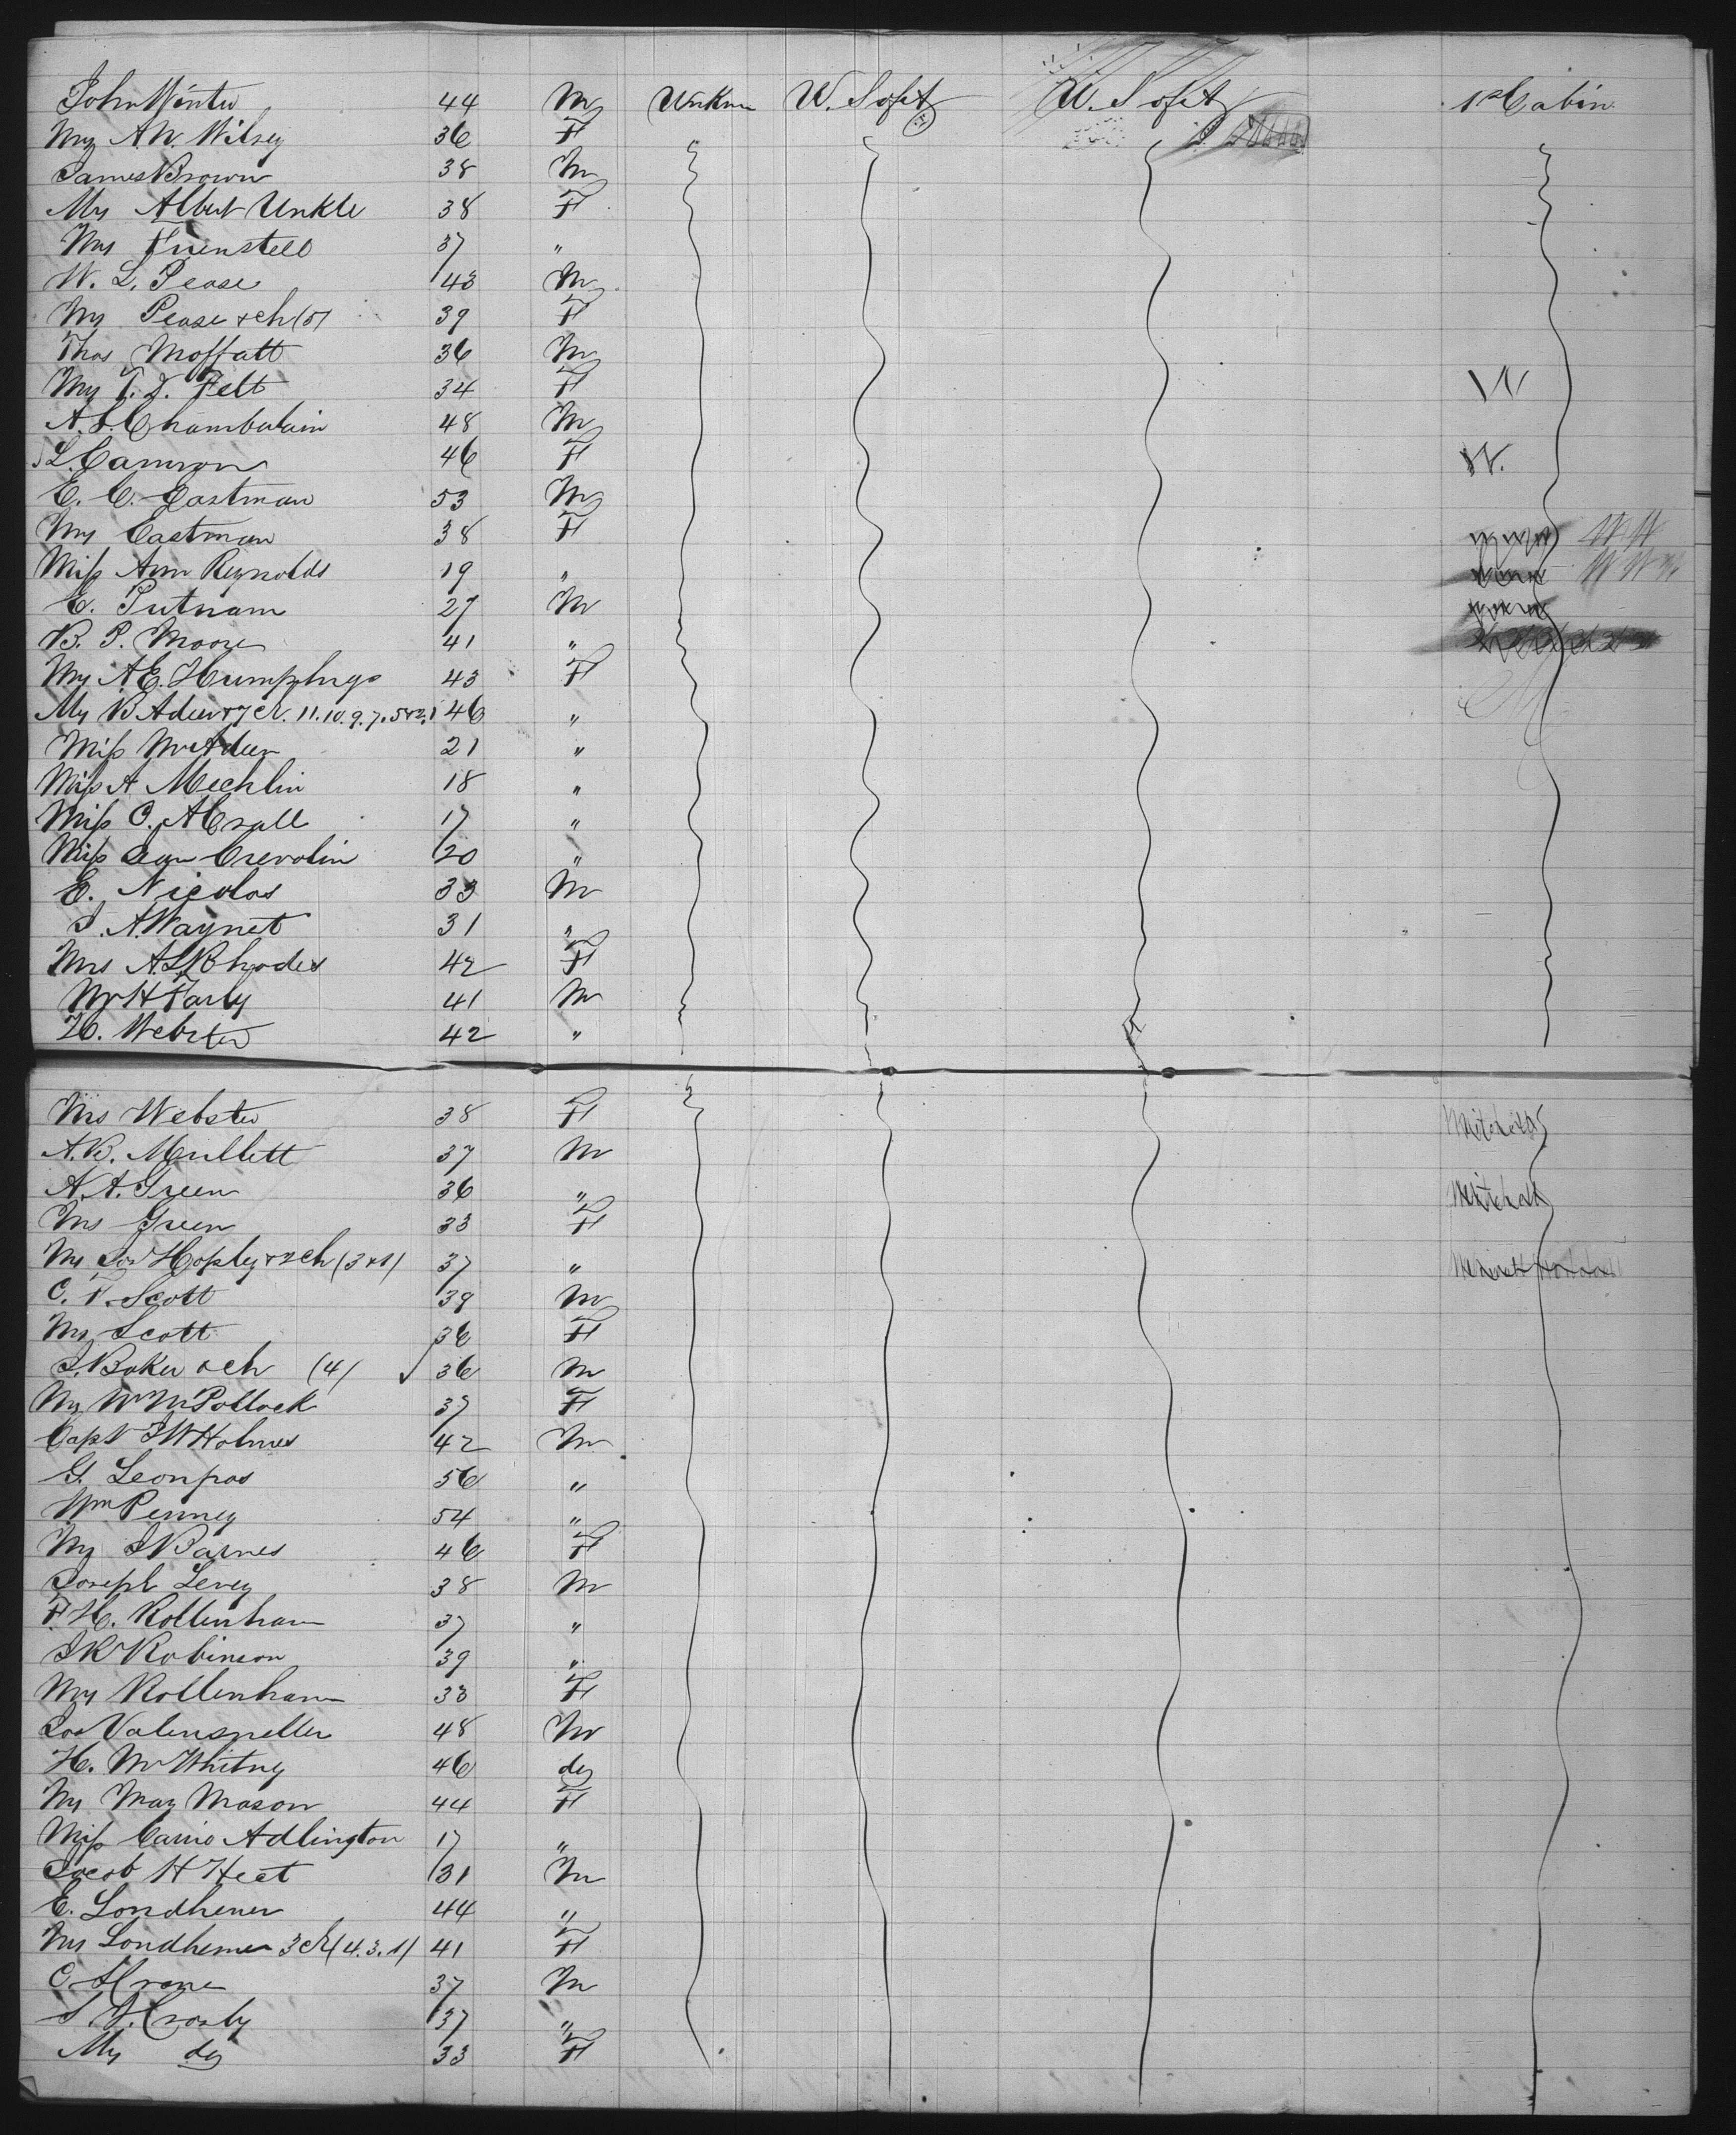 John Winter 44 M Unknn W. Soft W. Soft 1st Cabin
Mrs A.W. Wilsey 36 F
James Brown 38 M
Mrs Albert Unkle 38 F
Mrs 37 "
W. L. Pease 43 M
Mrs Pease & ch (5) 39 F
Thos Moffatt 36 M
Mrs T. D. Felt 34 F W
A. S. Chamberlain 48 M
L. Cameron 46 F W.
E. C. Eastman 53 M
Mrs Eastman 38 F W W
Miss Ann Reynolds 19 "
E. Putnam 27 M
B. P. Moore 41 "
Mrs A E. Humphrys 43 F
Mrs B Aden & 7 ch. 11.10.9.7.5 46 "
Miss M Aden 21 "
Miss A Mechlin 18 "
Miss C. A Crall 17 "
Miss Crevolin 20 "
E. Nicolas 33 M
J. A. Waynet 31 "
Mrs A.L. Rhodes 42 F
M H Farly 41 M
H. Webster 42 "
Mrs Webster 38 F
A.B. Mullett 37 M
A. A. Green 36 "
Mrs Green 33 F
Mrs Jos Hopley & 2 ch (3 & 1) 37 "
C. F. Scott 39 M
Mrs Scott 36 F
J. Baker & ch (4) 36 M
Mrs Wm Pollock 37 F
Capt J W Holmes 42 M
G. Leonpas 56 "
Wm Penney 54 "
Mrs J Barnes 46 F
Joseph Levey 38 M
F. H. Rottenham 37 "
J R Robinson 39 "
Mrs Rottenham 33 F
Jos Valensneller 48 M
H. M Whitney 46 do
Mrs May Mason 44 F
Miss Carrie Adlington 17 "
Jacob H Heat 31 M
E. Londhener 44 "
Mrs Londhemer 3 ch (4.3.1) 41 F
C. A Crane 37 M
S. J. Crosby 37 "
Mrs do 33 F